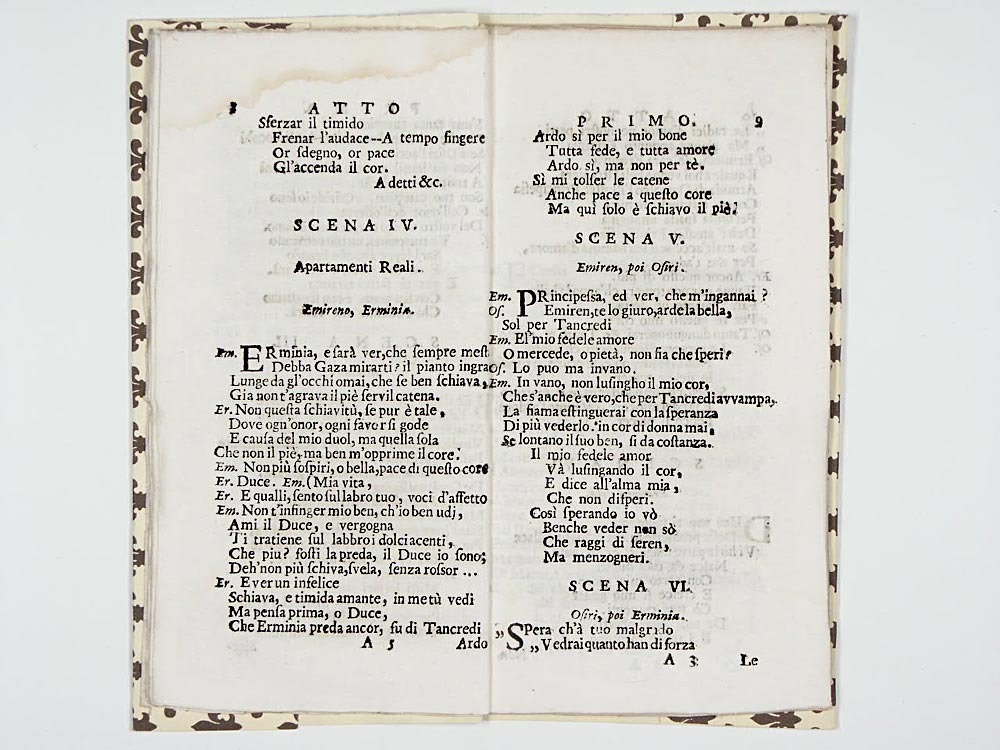 8 ATTO
Sferzar il timido
Frenar l'audace--A tempo fingere
Or sdegno, or pace
Gl'accenda il cor.
A detti &c.
SCENA IV.
Apartamenti Reali.
Emireno, Erminia.
Em. ERminia, e sarà ver, che sempre mest
Debba Gaza mirarti? il pianto ingra
Lunge da gl'occhi omai, che se ben schiava,
Gia non t'agrava il piè servil catena.
Er. Non questa schiavitù, se pur è tale,
Dove ogn'onor, ogni favor si gode
E causa del mio duol, ma quella sola
Che non il piè, ma ben m'opprime il core.
Em. Non più sospiri, o bella, pace di questo core
Er. Duce. Em. (Mia vita,
Er. E qualli, sento sul labro tuo, voci d'affetto
Em. Non t'infinger mio ben, ch'io ben udj,
Ami il Duce, e vergogna
Ti tratiene sul labbro i dolci acenti,
Che piu? fosti la preda, il Duce io sono;
Deh'non più schiva, svela, senza rossor ...
Er. E ver un infelice
Schiava, e timida amante, in me tù vedi
Ma pensa prima, o Duce,
Che Erminia preda ancor, fu di Tancredi
A 5 Ardo
PRIMO. 9
Ardo sì per il mio bone
Tutta fede, e tutta amore
Ardo sì, ma non per tè.
Sì mi tolser le catene
Anche pace a questo core
Ma quì solo è schiavo il piè!
SCENA V.
Emiren, poi Osiri.
Em. PRincipessa, ed ver, che m'ingannai?
Os. Emiren, te lo giuro, arde la bella,
Sol per Tancredi
Em. E'l mio fedele amore
O mercede, o pietà, non fia che speri?
Os. Lo puo ma invano.
Em. In vano, non lusingho il mio cor,
Che s'anche è vero, che per Tancredi avvampa,
La fiama estinguerai con la speranza
Di più vederlo. in cor di donna mai,
Se lontano il suo ben, si da costanza.
Il mio fedele amor
Và lusingando il cor,
E dice all'alma mia,
Che non disperi.
Così sperando io vò
Benche veder non sò
Che raggi di seren,
Ma menzogneri.
SCENA VI.
Osiri, poi Erminia.
„SPera ch'à tuo malgrado
„Vedrai quanto han di forza
A 3 Le